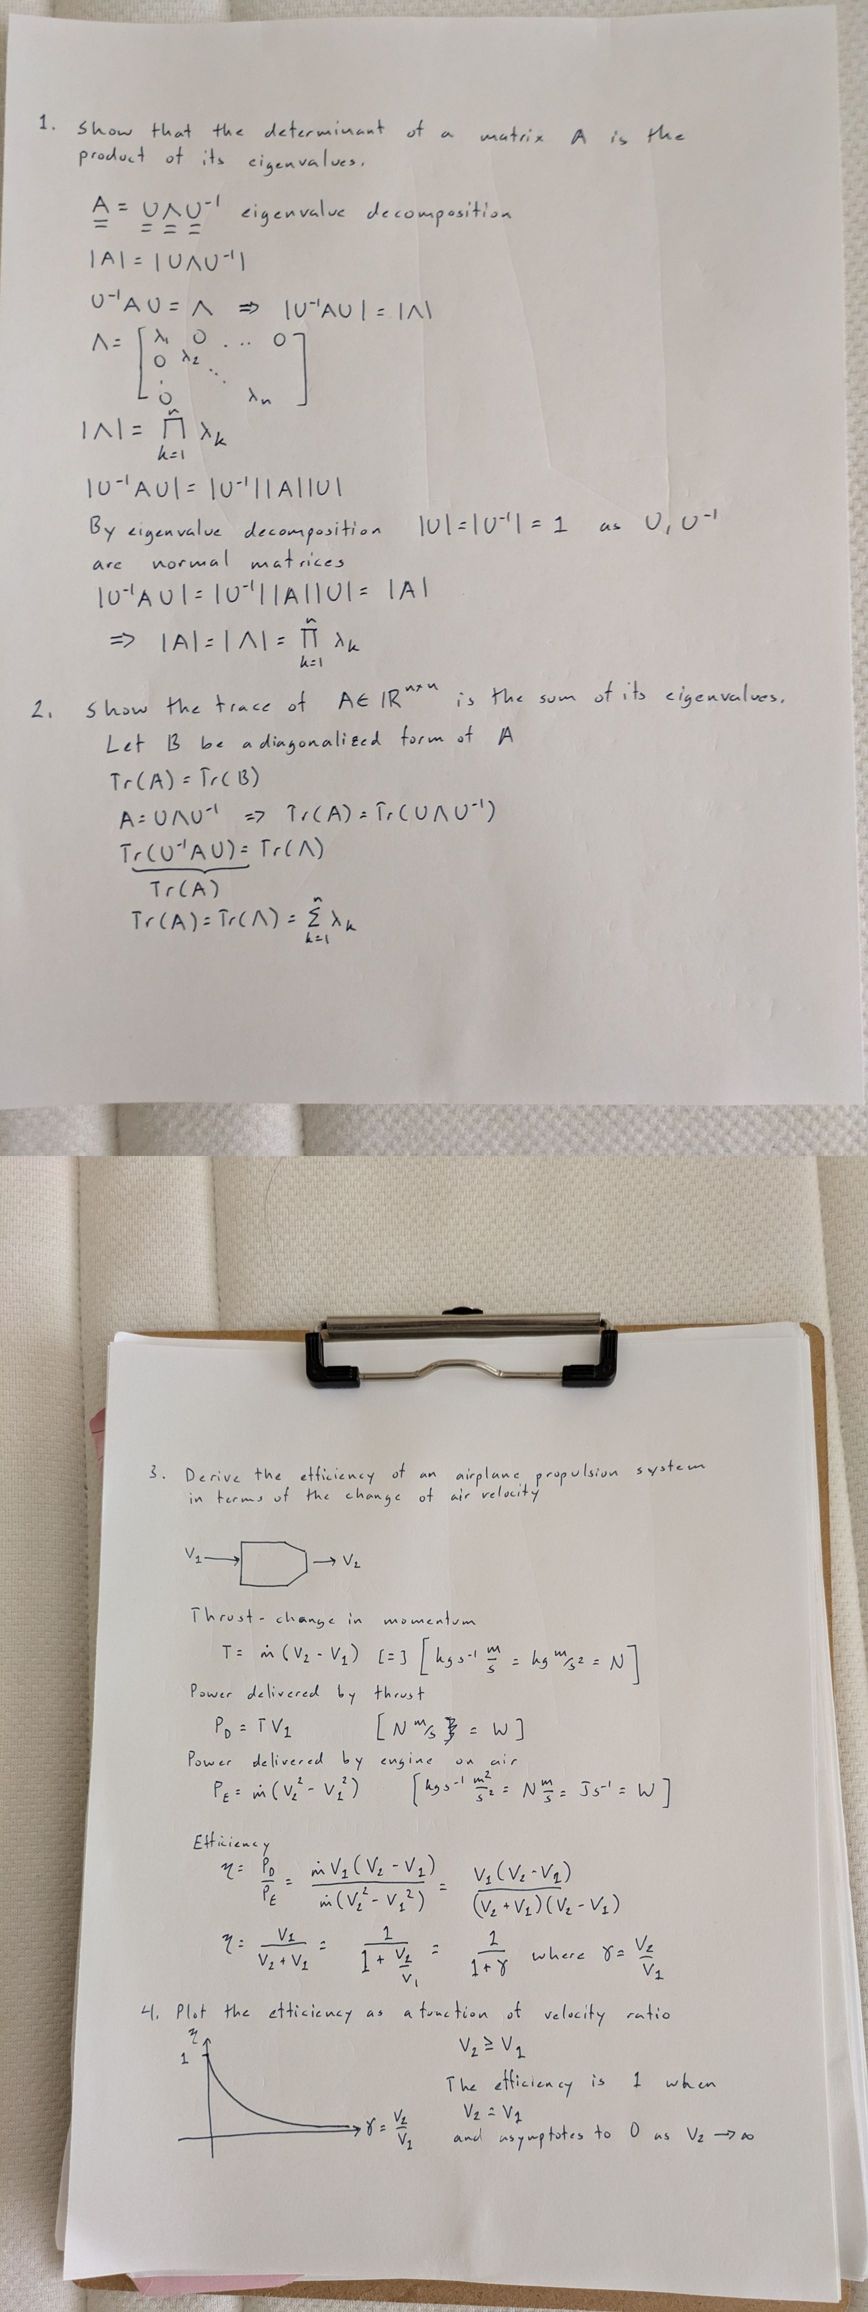 1. Show that the determinant of a matrix A is the
product of its eigenvalues.
A = UΛU⁻¹ eigenvalue decomposition
|A| = |UΛU⁻¹|
U⁻¹AU = Λ ⇒ |U⁻¹AU| = |Λ|
Λ = [λ₁ 0 ... 0
0 λ₂ ⋱
⋮
0 λn]
|Λ| = ∏ₖ₌₁ⁿ λₖ
|U⁻¹AU| = |U⁻¹||A||U|
By eigenvalue decomposition |U| = |U⁻¹| = 1 as U, U⁻¹
are normal matrices
|U⁻¹AU| = |U⁻¹||A||U| = |A|
⇒ |A| = |Λ| = ∏ₖ₌₁ⁿ λₖ
2. Show the trace of A ∈ ℝⁿˣⁿ is the sum of its eigenvalues.
Let B be a diagonalized form of A
Tr(A) = Tr(B)
A = UΛU⁻¹ ⇒ Tr(A) = Tr(UΛU⁻¹)
Tr(U⁻¹AU) = Tr(Λ)
Tr(A)
Tr(A) = Tr(Λ) = Σₖ₌₁ⁿ λₖ
3. Derive the efficiency of an airplane propulsion system
in terms of the change of air velocity
V₁ → → V₂
Thrust - change in momentum
T = ṁ(V₂ - V₁) [=] [kg s⁻¹ m/s = kg m/s² = N]
Power delivered by thrust
P_D = TV₁ [N m/s = W]
Power delivered by engine on air
P_E = ṁ(V₂² - V₁²) [kg s⁻¹ m²/s² = N m/s = J s⁻¹ = W]
Efficiency
η = P_D/P_E = ṁV₁(V₂ - V₁)/ṁ(V₂² - V₁²) = V₁(V₂ - V₁)/(V₂ + V₁)(V₂ - V₁)
η = V₁/(V₂ + V₁) = 1/(1 + V₂/V₁) = 1/(1 + γ) where γ = V₂/V₁
4. Plot the efficiency as a function of velocity ratio
η
V₂ ≥ V₁
1
The efficiency is 1 when
V₂ = V₁
γ = V₂/V₁
and asymptotes to 0 as V₂ → ∞